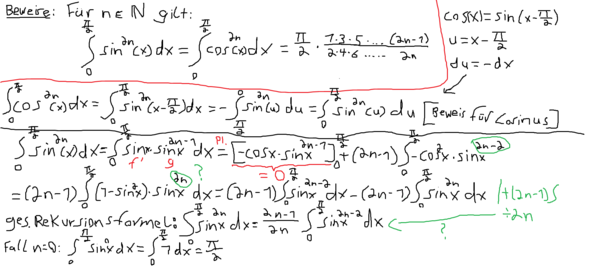 Beweise: Für n∈ℕ gilt:
∫₀^{π/2} sin^{2n}(x)dx = ∫₀^{π/2} cos^{2n}(x)dx = π/2 · 1·3·5·...·(2n-1) / 2·4·6·..... 2n
cos(x) = sin(x-π/2)
u = x - π/2
du = -dx
∫₀^{π/2} cos^{2n}(x)dx = ∫₀^{π/2} sin^{2n}(x-π/2)dx = -∫_{π/2}^{0} sin^{2n}(u)du = ∫₀^{π/2} sin^{2n}(u)du [Beweis für Cosinus]
∫₀^{π/2} sin^{2n}(x)dx = ∫₀^{π/2} sinx·sinx^{2n-1}dx =^{P.I.} [-cosx·sinx^{2n-1}]₀^{π/2} + (2n-1)∫₀^{π/2} -cos²x·sinx^{2n-2}
f' g ? = 0
= (2n-1)∫₀^{π/2} (1-sin²x)·sinx^{2n} dx = (2n-1)∫₀^{π/2} sinx^{2n-2}dx - (2n-1)∫₀^{π/2} sinx^{2n}dx |+(2n-1)∫
÷2n
ges. Rekursionsformel: ∫₀^{π/2} sinx^{2n}dx = (2n-1)/2n ∫₀^{π/2} sinx^{2n-2}dx
?
Fall n=0: ∫₀^{π/2} sinx⁰dx = ∫₀^{π/2} 1dx = π/2